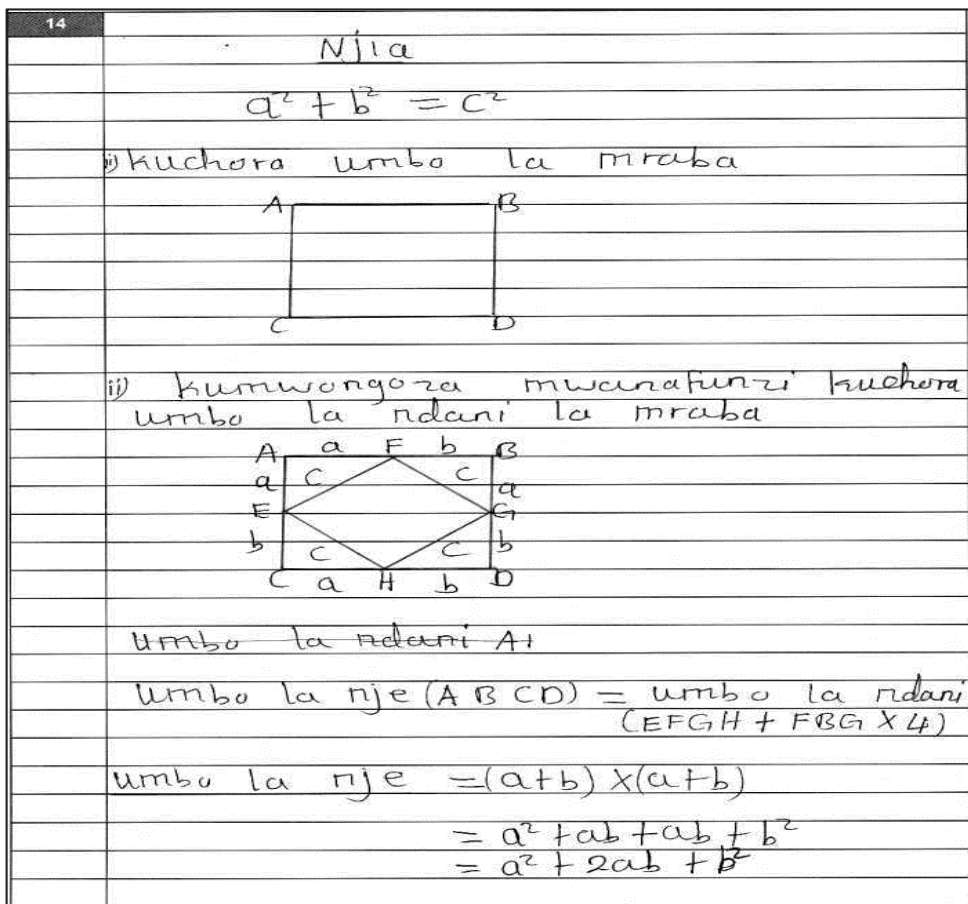 14
Njia
a² + b² = c²
i) kuchora umbo la mraba
A B
C D
ii) kumwongoza mwanafunzi kuchora
umbo la ndani la mraba
A a F b B
a C C a
E G
b C C b
C a H b D
umbo la ndani A1
umbo la nje (A B C D) = umbo la ndani
(EFGH + FBG X 4)
umbo la nje = (a+b) X (a+b)
= a² + ab + ab + b²
= a² + 2ab + b²